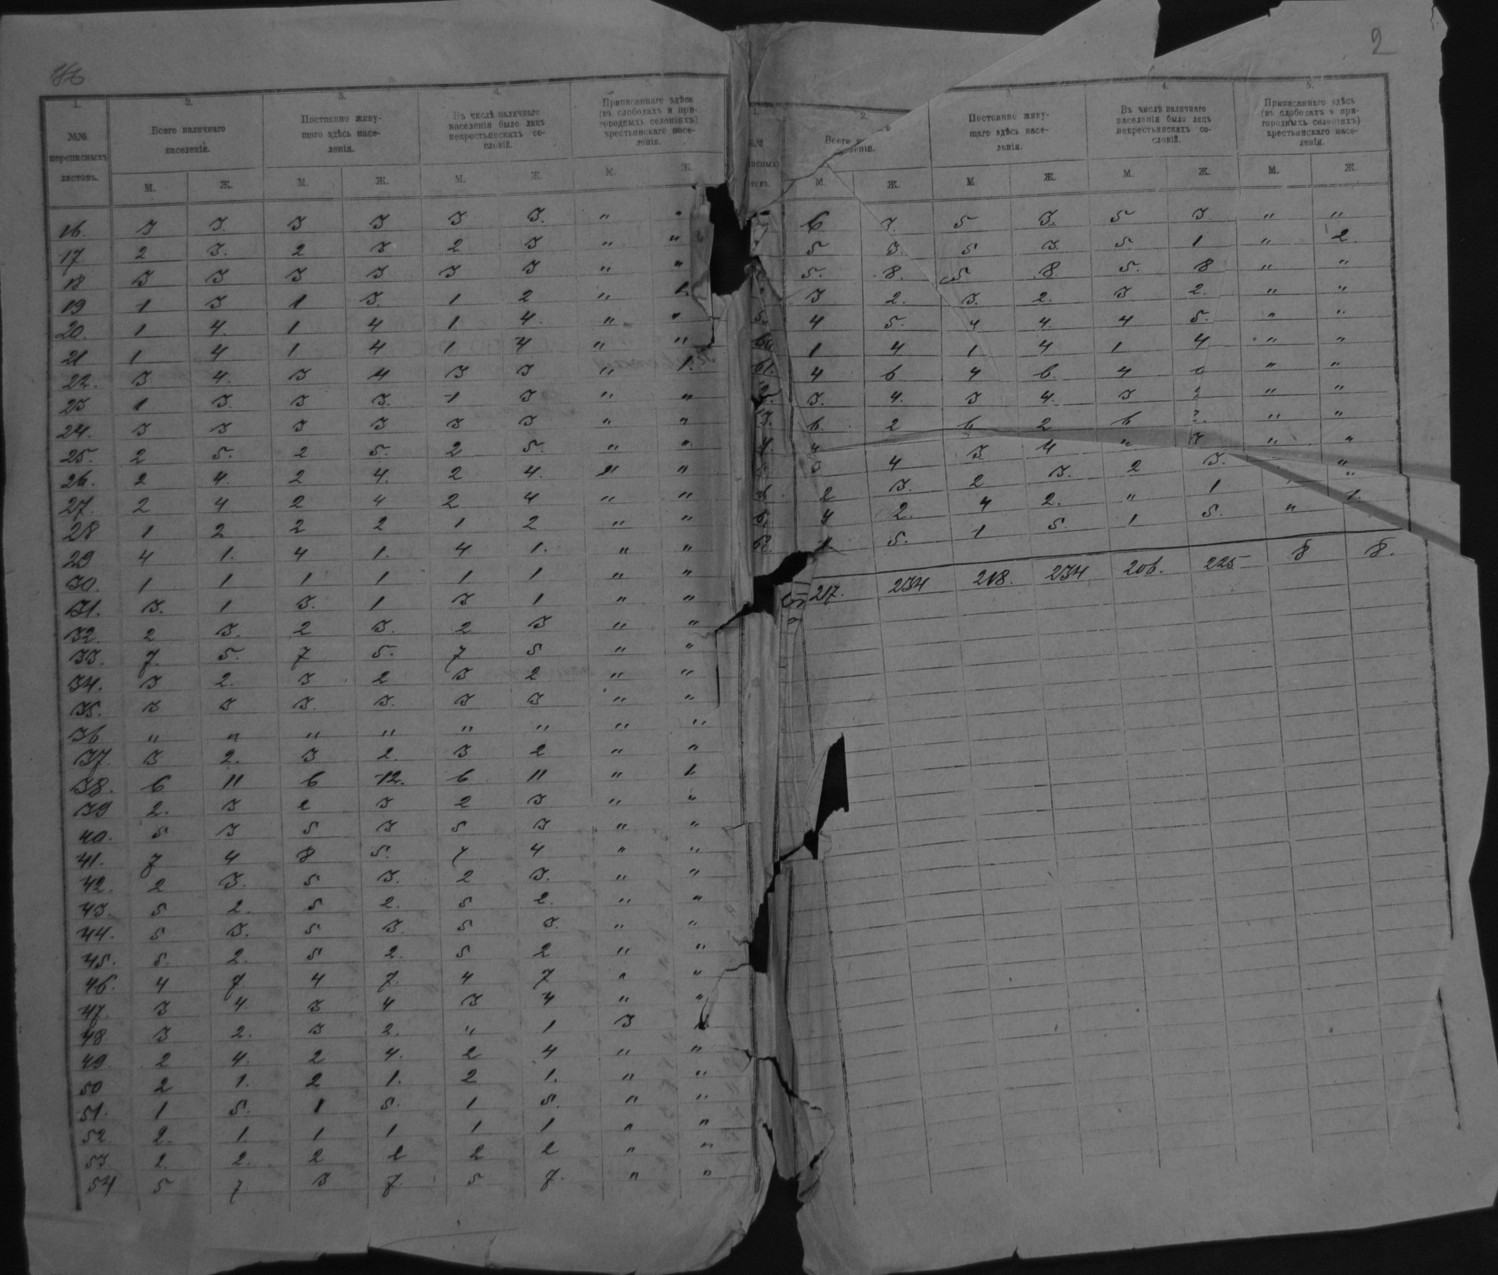 2
1. 2. 3. 4. 5.
№№ переписныхъ листовъ.
Всего наличнаго населенія.
Постоянно живущаго здѣсь населенія.
Въ числѣ наличнаго населенія было лицъ некрестьянскихъ сословій.
Приписаннаго здѣсь (въ слободахъ и пригородныхъ селеніяхъ) крестьянскаго населенія.
М. Ж. М. Ж. М. Ж. М. Ж.
16 3 3. 3 3 3 3. " "
17 2 3. 2 3 2 3 " "
18 3 3 3 3 3 3 " "
19 1 3 1 3. 1 2 " 1.
20. 1 4. 1 4 1 4. " "
21 1 4 1 4 1 4 " "
22. 3 4. 3 4 3 3 " 1.
23 1 3. 3 3. 1 3 " "
24. 3 3 3 3 3 3 " "
25. 2 5. 2 5. 2 5. " "
26. 2 4. 2 4. 2 4. " "
27. 2 4 2 4 2 4 " "
28 1 2 2 2 1 2 " "
29 4 1. 4 1. 4 1. " "
30. 1 1 1 1 1 1 " "
31. 3. 1 3. 1 3 1 " "
32. 2 3. 2 3. 2 3 " "
33. 7. 5. 7 5. 7 5 " "
34. 3 2. 3 2 3 2 " "
35. 3 3 3. 3. 3 3 " "
36 " " " " " " " "
37. 3 2. 3 2. 3 2 " "
38. 6 11 6 12. 6 11 " 1.
39 2. 3 2 3 2 3 " "
40. 5 3 5 3 5 3 " "
41. 7 4 8 5. 7 4 " "
42. 2 3. 5 3. 2 3. " "
43. 5 2. 5 2. 5 2. " "
44. 5 3. 5 3. 5 3. " "
45. 5. 2. 5 2. 5 2 " "
46. 4 7 4 7. 4 7 " "
47. 3 4 3 4 3 4 " "
48 3 2. 3 2. " 1 3
49. 2 4. 2 4. 2 4 " "
50 2 1. 2 1. 2 1. " "
51. 1 5. 1 5. 1 5. " "
52 2. 1 1 1 1 1 " "
53 2. 2. 2 2 2 2 " "
54 5 7 3 7 5 7. " "
2. 3. 4. 5.
Постоянно живущаго здѣсь населенія.
Въ числѣ наличнаго населенія было лицъ некрестьянскихъ сословій.
Приписаннаго здѣсь (въ слободахъ и пригородныхъ селеніяхъ) крестьянскаго населенія.
М. Ж. М. Ж. М. Ж. М. Ж.
6 3. 5 3. 5 3 " "
5 3. 5 3. 5. 1 " 2
5. 8. 5 8 5. 8 " "
3 2. 3. 2. 3 2. " "
4 5. 4 4. 4 5. " "
1 4 1 4 1 4 " "
4 6 4 6. 4 " "
3. 4. 3 4. 3 " "
6 2 6 2 6 " "
4 3. 4 " 3 " "
2 3. 2 3. 2 3. "
4 2. 4 2. " 1 1.
5. 1 5 1 5. "
217. 234 218. 234 206. 225 8 8.